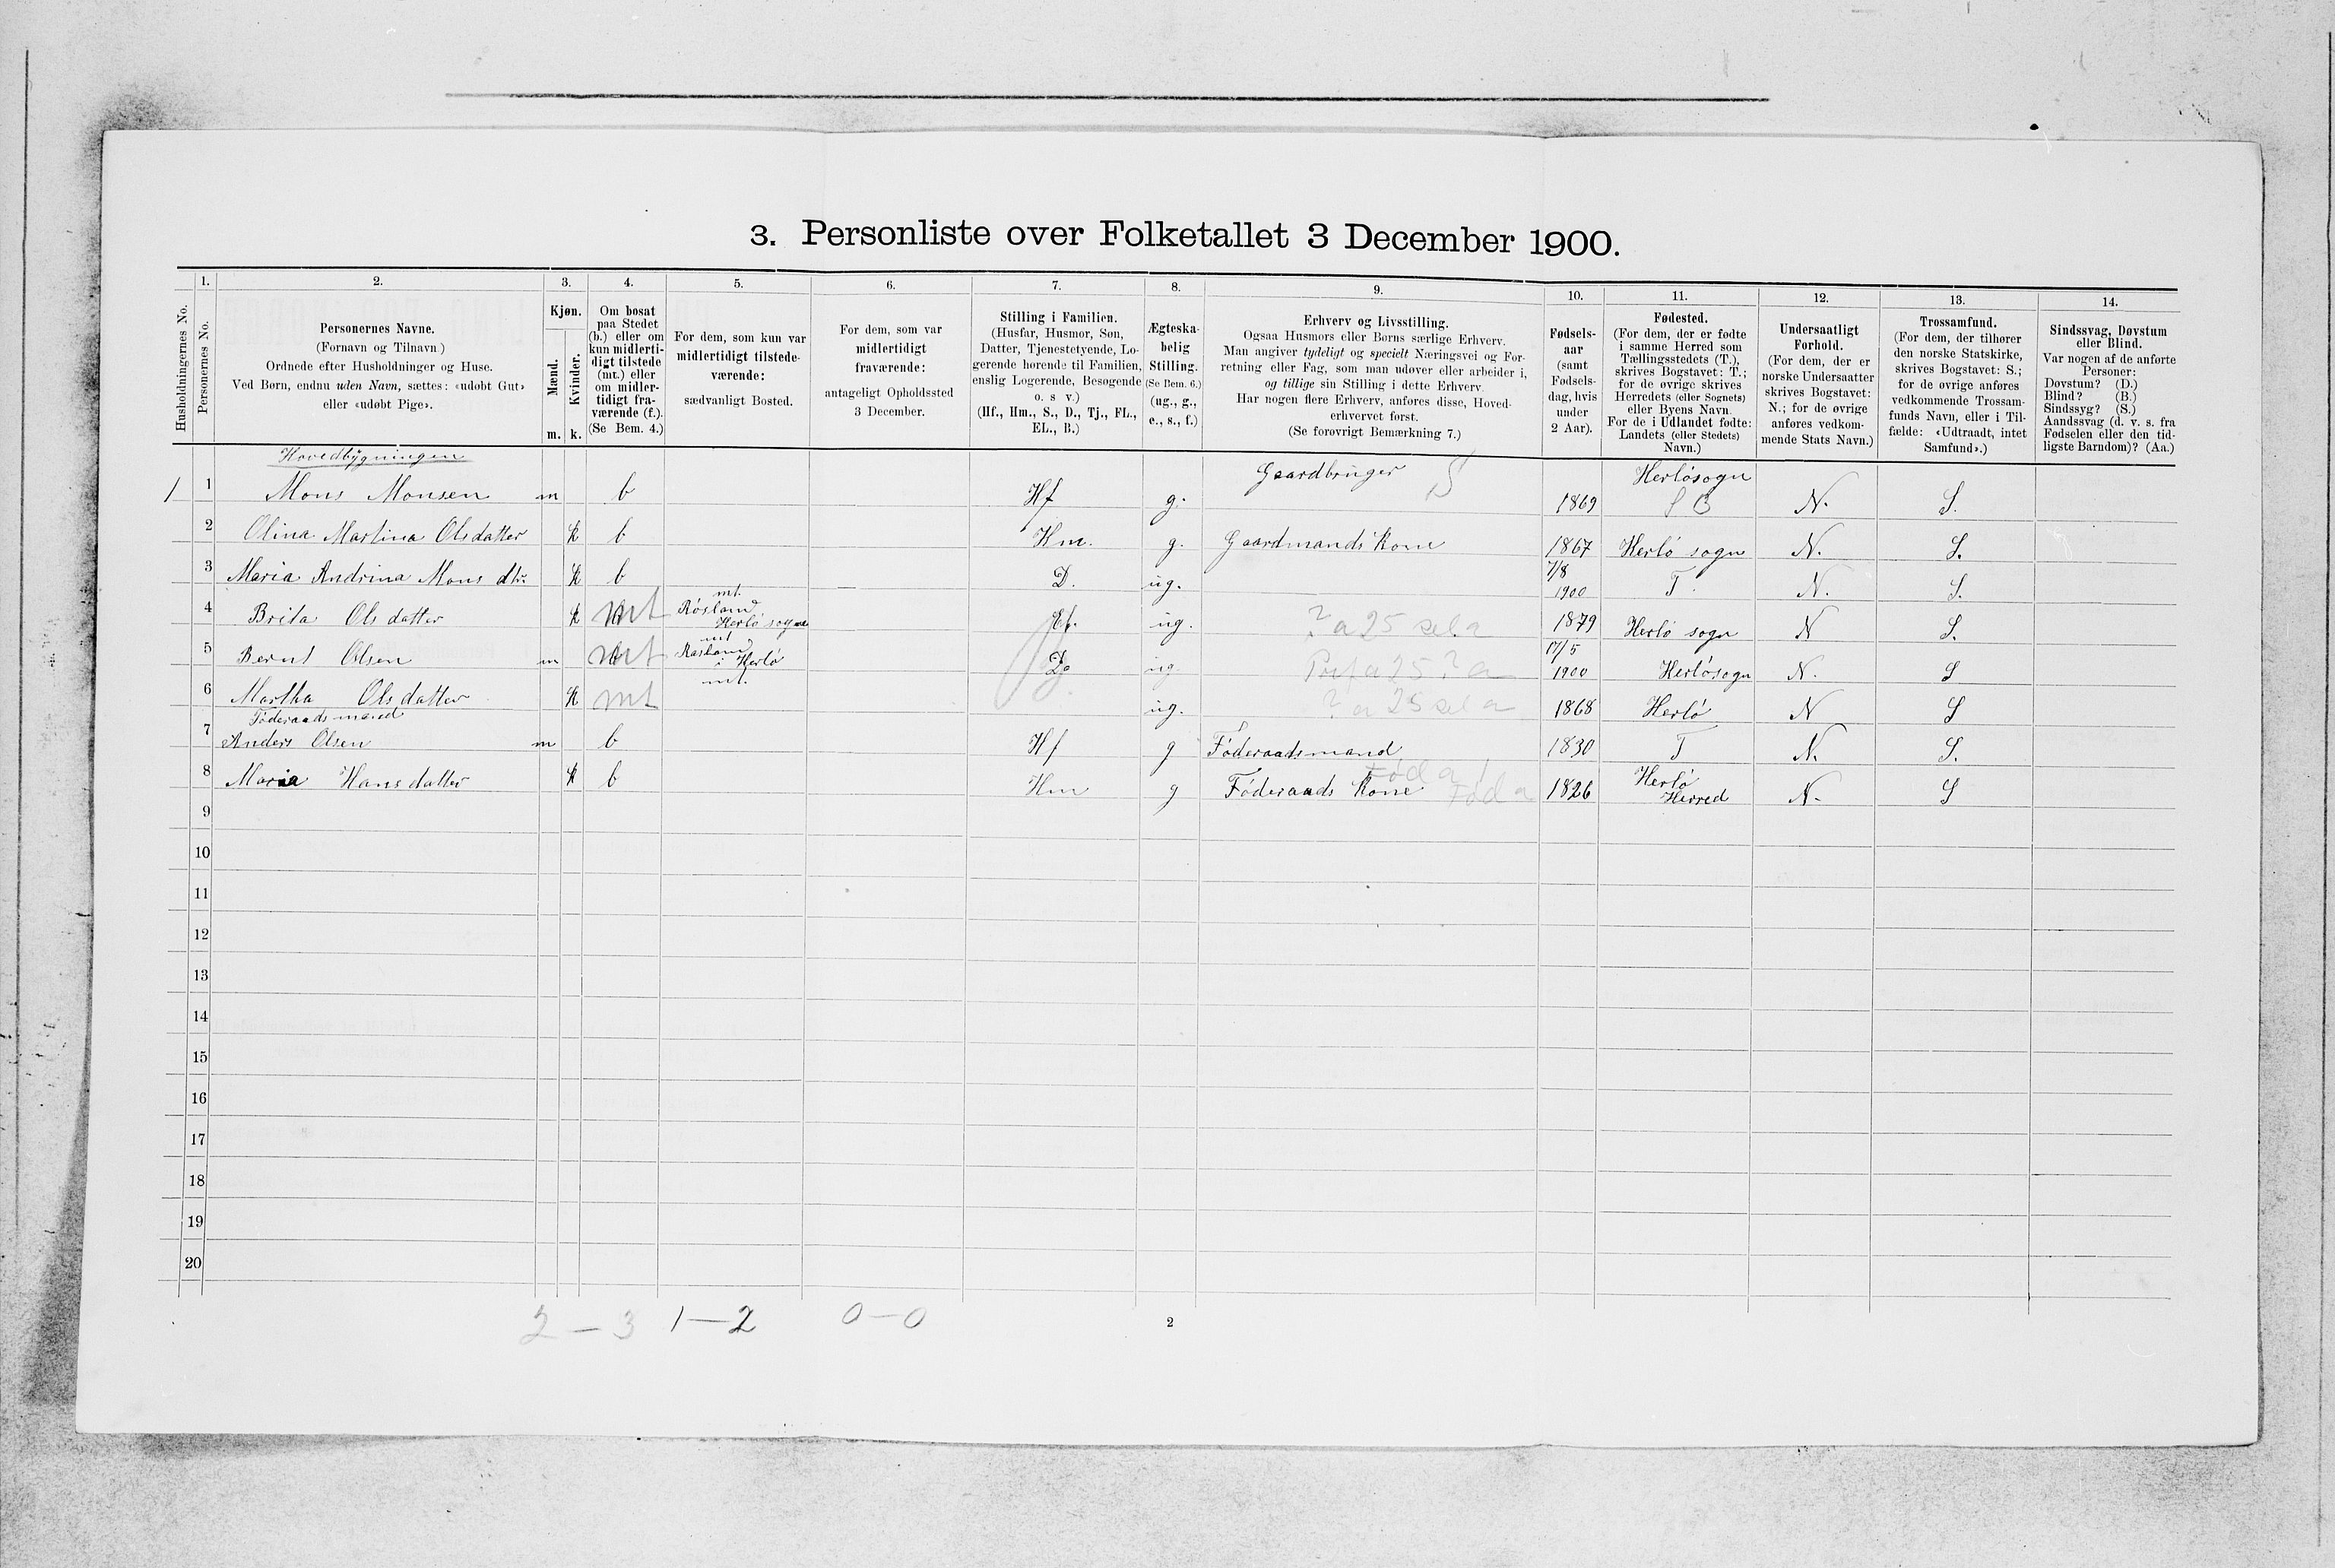 3. Personliste over Folketallet 3 December 1900.
1. 2. 3. 4. 5. 6. 7. 8. 9. 10. 11. 12. 13. 14.
Husholdningernes No.
Personernes No.
Personernes Navne.
(Fornavn og Tilnavn.)
Ordnede efter Husholdninger og Huse.
Ved Børn, endnu uden Navn, sættes: «udøbt Gut»
eller «udøbt Pige».
Kjøn.
Mænd.
Kvinder.
m. k.
Om bosat
paa Stedet
(b.) eller om
kun midlerti-
digt tilstede
(mt.) eller
om midler-
tidigt fra-
værende (f.).
(Se Bem. 4.)
For dem, som kun var
midlertidigt tilstede-
værende:
sædvanligt Bosted.
For dem, som var
midlertidigt
fraværende:
antageligt Opholdssted
3 December.
Stilling i Familien.
(Husfar, Husmor, Søn,
Datter, Tjenestetyende, Lo-
gerende hørende til Familien,
enslig Logerende, Besøgende
o. s v.)
(Hf., Hm., S., D., Tj., FL.,
EL., B.)
Ægteska-
belig
Stilling.
(Se Bem. 6.)
(ug., g.,
e., s., f.)
Erhverv og Livsstilling.
Ogsaa Husmors eller Børns særlige Erhverv.
Man angiver tydeligt og specielt Næringsvei og For-
retning eller Fag, som man udøver eller arbeider i,
og tillige sin Stilling i dette Erhverv.
Har nogen flere Erhverv, anføres disse, Hoved-
erhvervet først.
(Se forøvrigt Bemærkning 7.)
Fødsels-
aar
(samt
Fødsels-
dag, hvis
under
2 Aar).
Fødested.
(For dem, der er fødte
i samme Herred som
Tællingsstedets (T.),
skrives Bogstavet: T.;
for de øvrige skrives
Herredets (eller Sognets)
eller Byens Navn.
For de i Udlandet fødte:
Landets (eller Stedets)
Navn.)
Undersaatligt
Forhold.
(For dem, der er
norske Undersaatter
skrives Bogstavet:
N.; for de øvrige
anføres vedkom-
mende Stats Navn.)
Trossamfund.
(For dem, der tilhører
den norske Statskirke,
skrives Bogstavet: S.;
for de øvrige anføres
vedkommende Trossam-
funds Navn, eller i Til-
fælde: «Udtraadt, intet
Samfund».)
Sindssvag, Døvstum
eller Blind.
Var nogen af de anførte
Personer:
Døvstum? (D.)
Blind? (B.)
Sindssyg? (S.)
Aandssvag (d. v. s. fra
Fødselen eller den tid-
ligste Barndom)? (Aa.)
Hovedbygningen
1 1 Mons Monsen m b Hf g. Gaardbruger S 1869 Herlösogn N. S.
2 Olina Martina Olsdatter k b Hm. g. Gaardmands Kone 1867 Herlö sogn N. S.
3 Maria Andrina Mons dtr. k b D. ug. 7/8 1900 T. N. S.
4 Brita Olsdatter k mt mt. Rösland Herlö sogn ug. 1879 Herlö sogn N S.
5 Bernt Olsen m mt mt Rösland i Herlö ug 17/5 1900 Herlösogn N. S
6 Martha Olsdatter k mt mt. ug. 1868 Herlö N S
Föderaadsmand
7 Anders Olsen m b Hf g Föderaadsmand 1830 T N. S.
8 Maria Hansdatter k b Hm g Föderaads Kone Föda 1826 Herlö Herred N. S
9
10
11
12
13
14
15
16
17
18
19
20
2 – 3 1 – 2 0 – 0
2